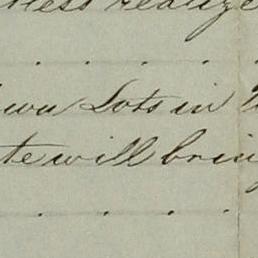 less realize
. . . . .
own Lots in
te will brin
. . . .